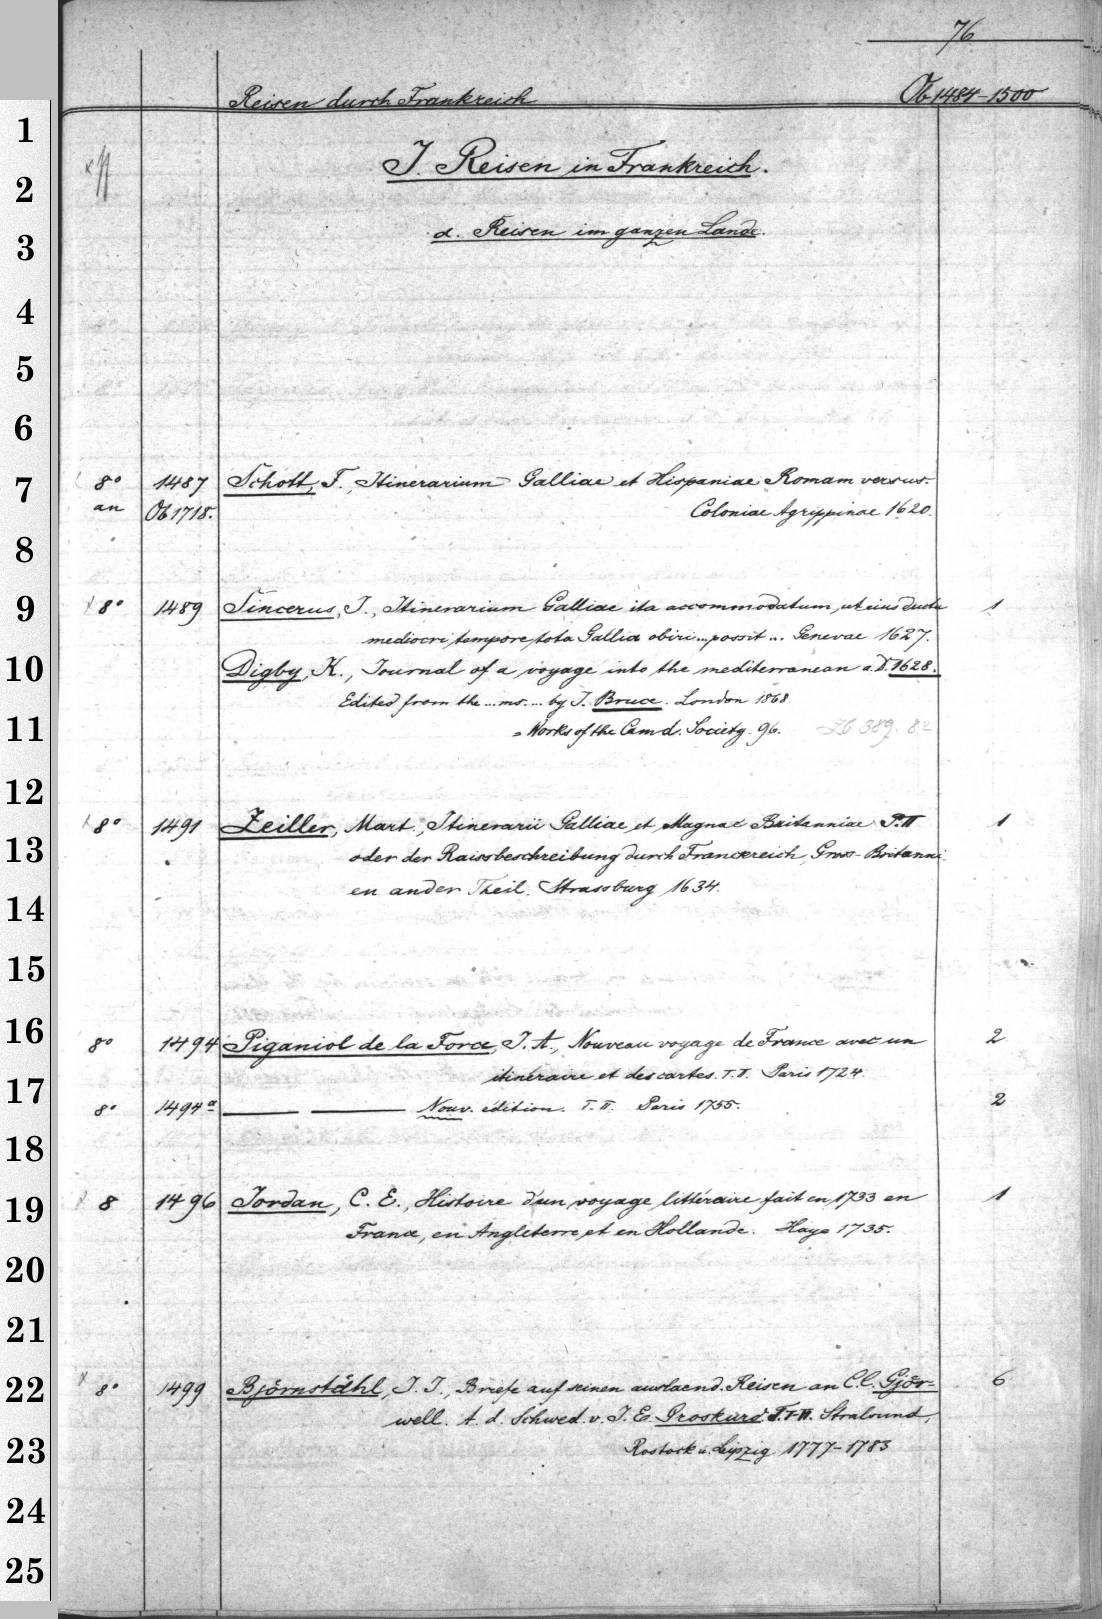 76
Reisen durch Frankreich Ob 1484-1500
I. Reisen in Frankreich.
a. Reisen im ganzen Lande.
8° 1487 Schott, F., Itinerarium Galliae et Hispaniae Romam versus.
an Ob 1718. Coloniae Agrippinae 1620.
x 8° 1489 Sincerus, J., Itinerarium Galliae ita accommodatum, ut eius ductu 1
mediocri tempore tota Gallia obiri...possit... Genevae 1627.
Digby, K., Journal of a voyage into the mediterranean a. D. 1628.
Edited from the ... ms. ... by J. Bruce. London 1868
= Works of the Camd. Society. 96. Zb 389. 8°
x 8° 1491 Zeiller, Mart., Itinerarii Galliae et Magnae Britanniae P. II 1
oder der Raissbeschreibung durch Franckreich, Gross-Britanni
en ander Theil. Strassburg 1634.
8° 1494 Piganiol de la Force, J. A., Nouveau voyage de France avec un 2
itinéraire et des cartes. T. I. Paris 1724.
8° 1494a Nouv. édition. T. II. Paris 1755. 2
x 8 1496 Jordan, C. E., Histoire d'un voyage littéraire fait en 1733 en 1
France, en Angleterre, et en Hollande. Haye 1735.
x 8° 1499 Björnståhl, J. J., Briefe auf seinen auslaend. Reisen an C. C. Gjör- 6
well. A. d. Schwed. v. J. E. Groskurd T. I-VI. Stralsund,
Rostock u. Leipzig 1777-1783
1
2
3
4
5
6
7
8
9
10
11
12
13
14
15
16
17
18
19
20
21
22
23
24
25